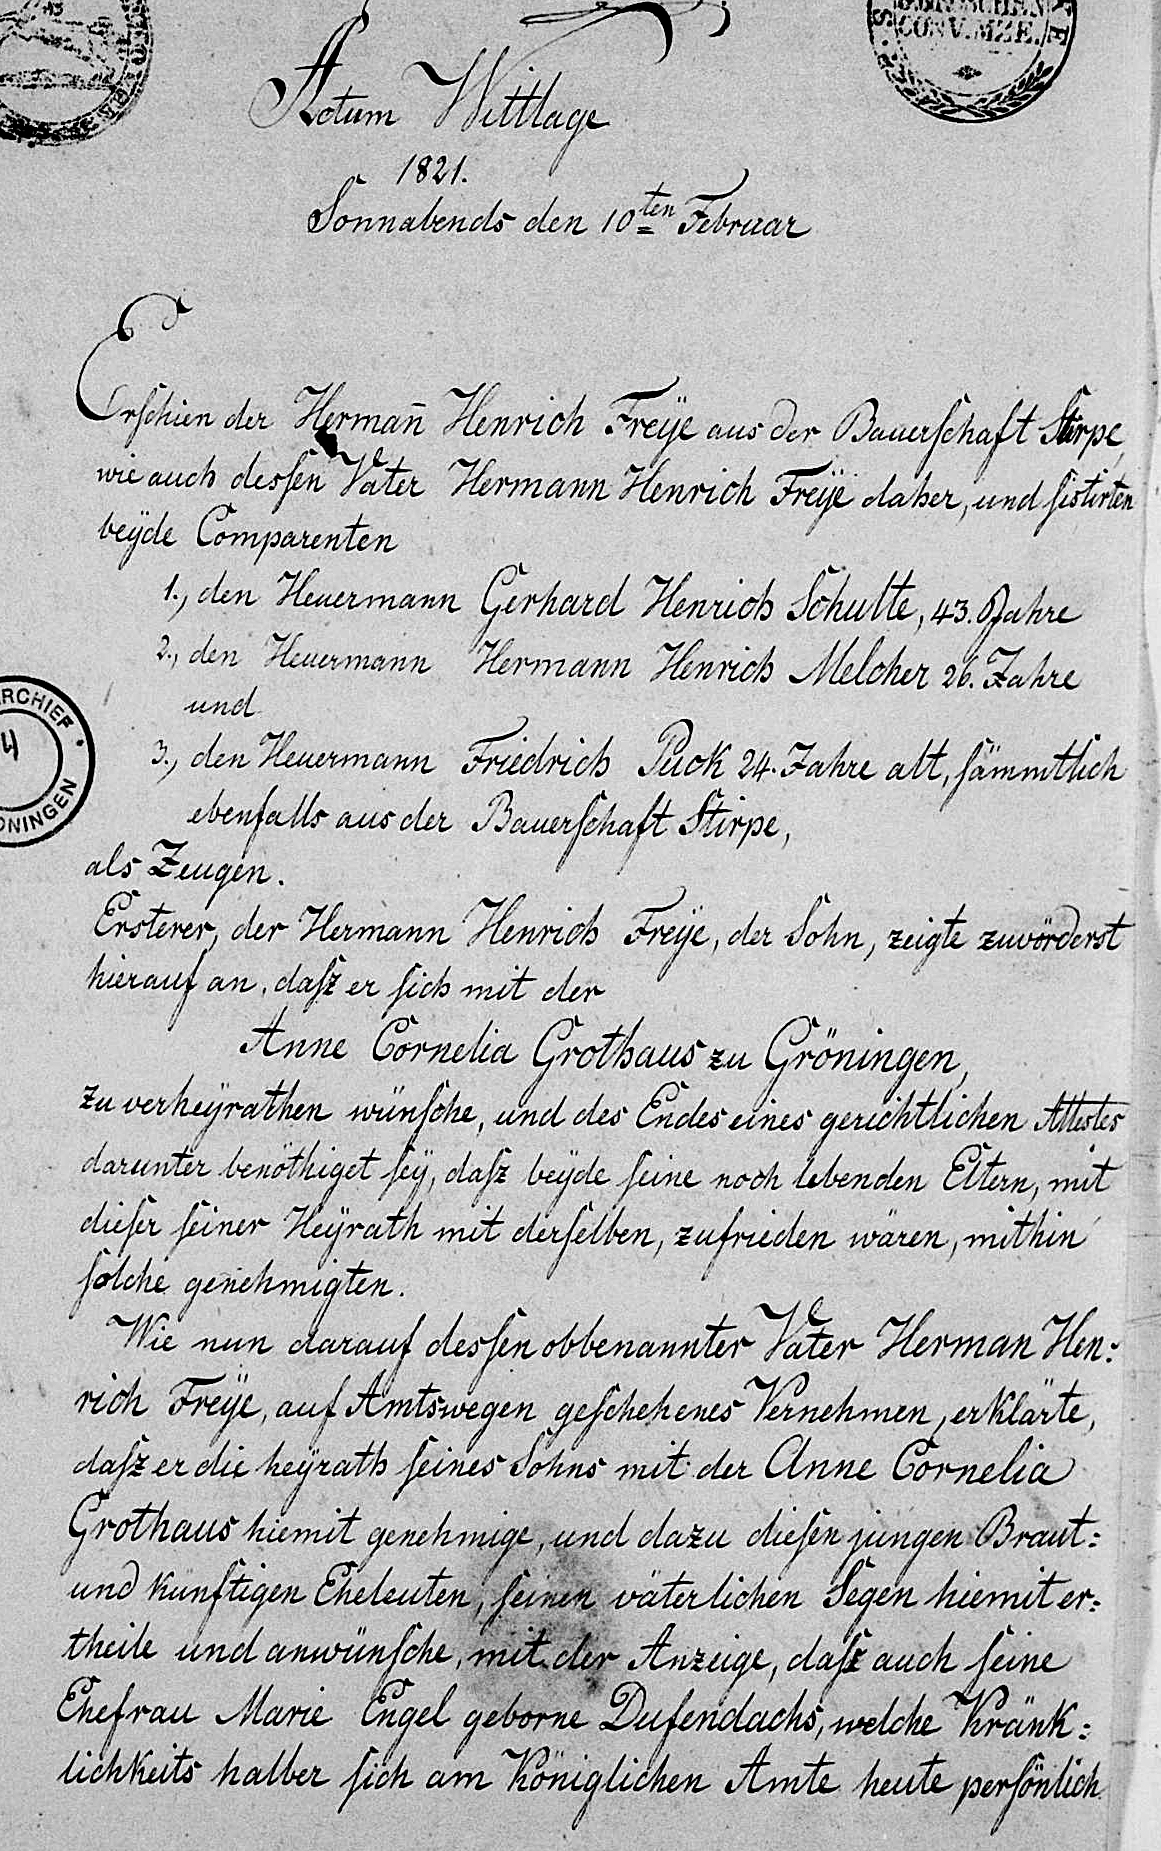 CONV.MZE.
Actum Wittlage
1821.
Sonnabends den 10ten Februar
Erschien der Herman̄ Henrich Freÿe aus der Bauerschaft Stirpe,
wie auch dessen Vater Hermann Henrich Freÿe daher, und sistirten
beÿde Comparenten
1., den Heuermann Gerhard Henrich Schulte, 43. Jahre
2., den Heuermann Hermann Henrich Melcher 26. Jahre
und
3., den Heuermann Friedrich Puck 24. Jahre alt, sämmtlich
ebenfalls aus der Bauerschaft Stirpe,
als Zeugen.
Ersterer, der Hermann Henrich Freÿe, der Sohn, zeigte zuvörderst
hierauf an, daß er sich mit der
Anne Cornelia Grothaus zu Gröningen,
zu verheÿrathen wünsche, und des Endes eines gerichtlichen Attestes
darunter benöthiget seÿ, daß beÿde seine noch lebenden Eltern, mit
dieser seiner Heÿrath mit derselben, zufrieden wären, mithin
solche genehmigten.
Wie nun darauf dessen obbenannter Vater Herman Hen:
rich Freÿe, auf Amtswegen geschehenes Vernehmen, erklärte,
daß er die heÿrath seines Sohns mit der Anne Cornelia
Grothaus hiemit genehmige, und dazu diesen jungen Braut:
und künftigen Eheleuten, seinen väterlichen Segen hiemit er:
theile und anwünsche, mit der Anzeige, daß auch seine
Ehefrau Marie Engel geborne Dufendachs, welche Kränk:
lichkeits halber sich am Königlichen Amte heute persönlich